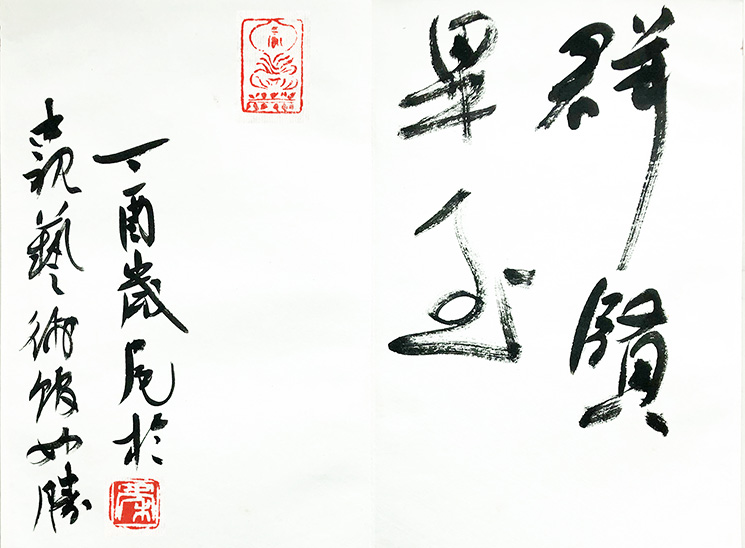 群賢
畢至
丁酉歲尾於
古觀藝術館如勝